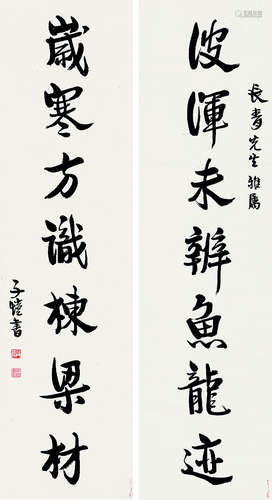 長青先生雅属
波渾未辨魚龍迹
歲寒方識棟梁材
子愷書